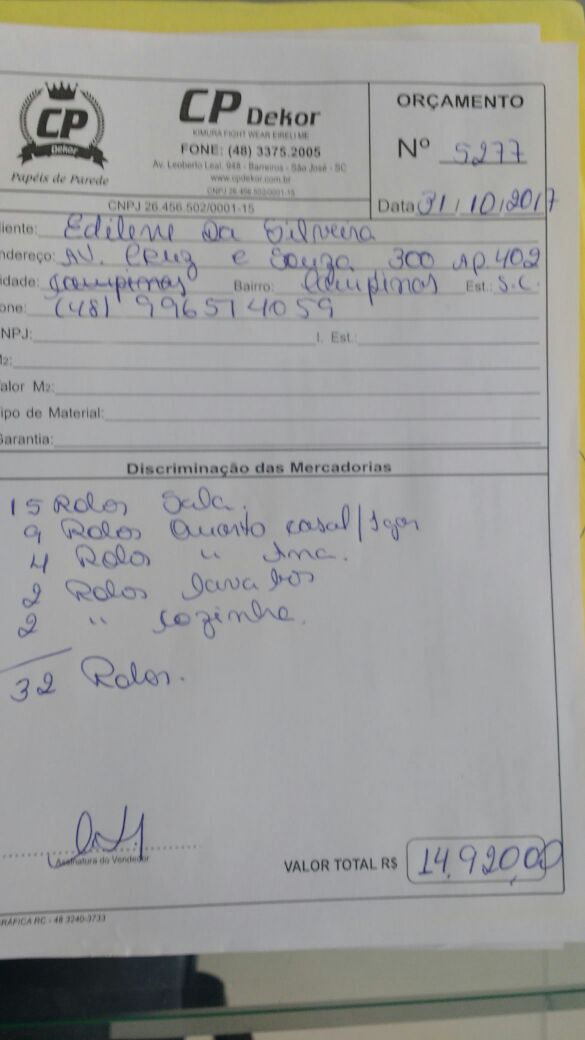 CP
Dekor
Papéis de Parede
CP Dekor
KIMURA FIGHT WEAR EIRELI ME
FONE: (48) 3375.2005
Av. Leoberto Leal, 948 - Barreiros - São José - SC
www.cpdekor.com.br
CNPJ 26.456.502/0001-15
ORÇAMENTO
Nº 5277
CNPJ 26.456.502/0001-15
Data 31/10/2017
liente: Edilene Da Silveira
ndereço: AV. Cruz e Souza 300 AP 402
idade: Campinas Bairro: Campinas Est.: S.C.
one: (48) 996514059
NPJ: I. Est.:
M2:
alor M2:
ipo de Material:
Garantia:
Discriminação das Mercadorias
15 Rolos Sala.
9 Rolos Quarto casal/Igor
4 Rolos " Ana.
2 Rolos lavabos
2 " cozinha.
32 Rolos.
Assinatura do Vendedor
VALOR TOTAL R$ 14.920,00
GRÁFICA RC - 48 3240-3733